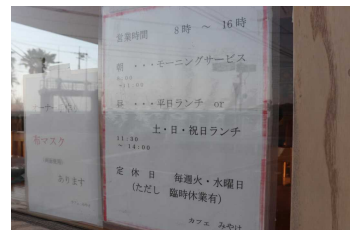 営業時間 8時 ~ 16時
朝 ・・・モーニングサービス
昼 ・・・平日ランチ or
土・日・祝日ランチ
11:30
~ 14:00
定 休 日 毎週火・水曜日
(ただし 臨時休業有)
カフェ みやけ
布マスク
あります